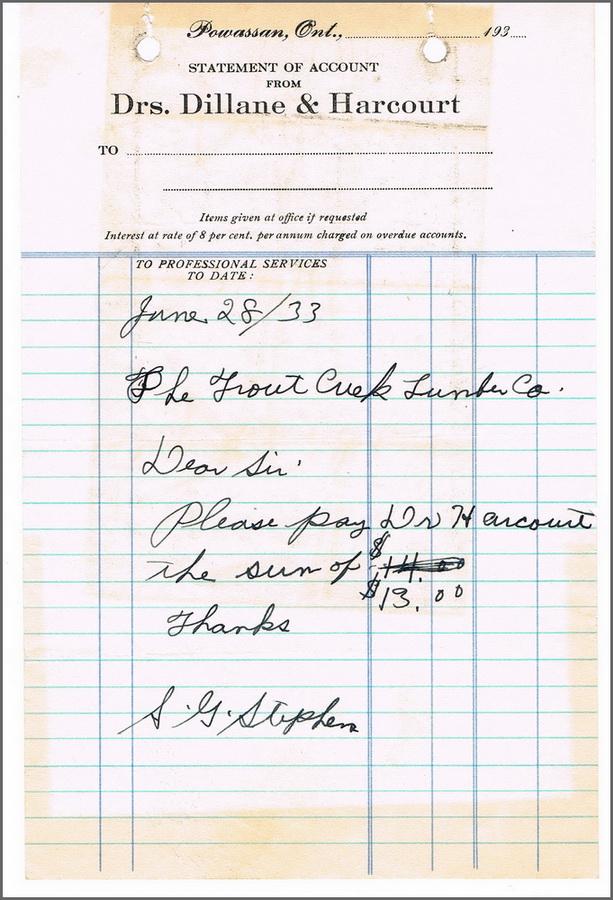 Powassan, Ont., 193
STATEMENT OF ACCOUNT
FROM
Drs. Dillane & Harcourt
TO
Items given at office if requested
Interest at rate of 8 per cent. per annum charged on overdue accounts.
TO PROFESSIONAL SERVICES
TO DATE:
June 28/33
The Trout Creek Lumber Co.
Dear Sir:
Please pay Dr Harcourt
the sum of $14.00
$13.00
Thanks
S. G. Stephens